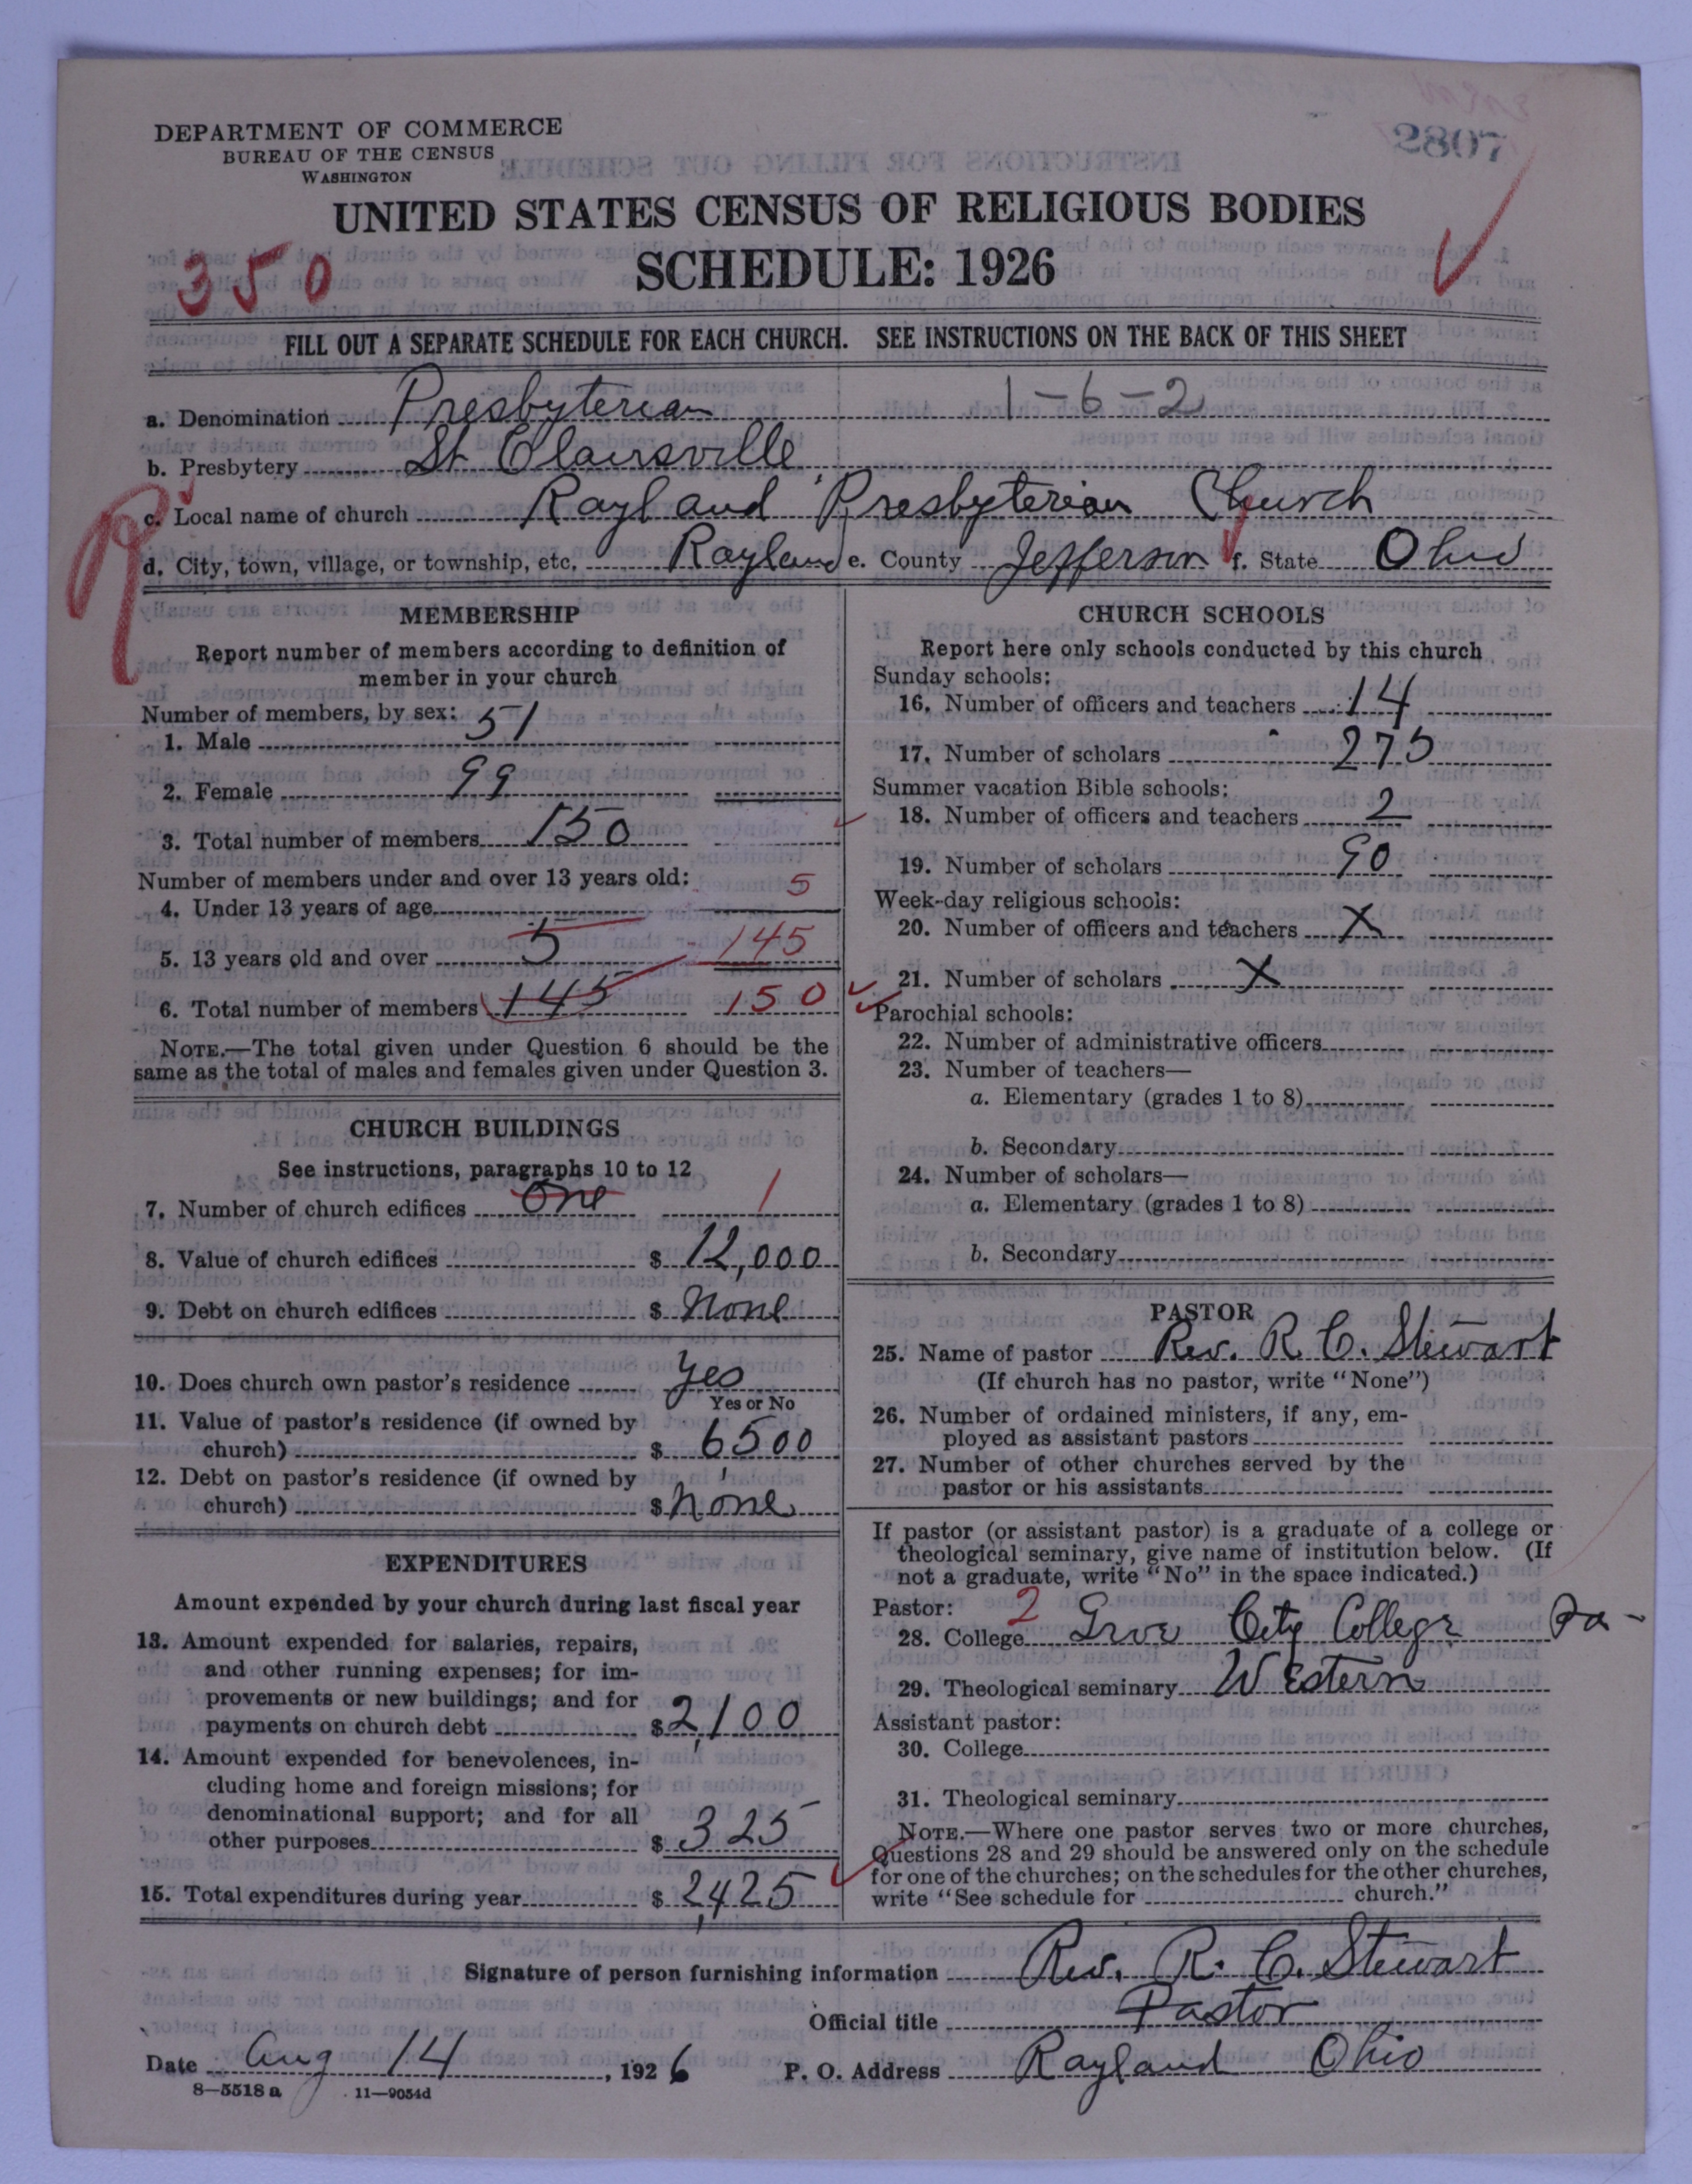 2807
DEPARTMENT OF COMMERCE
BUREAU OF THE CENSUS
WASHINGTON
UNITED STATES CENSUS OF RELIGIOUS BODIES
350
SCHEDULE: 1926
FILL OUT A SEPARATE SCHEDULE FOR EACH CHURCH. SEE INSTRUCTIONS ON THE BACK OF THIS SHEET
a. Denomination Presbyterian 1-6-2
b. Presbytery St Clairsville
c. Local name of church Rayland Presbyterian Church
d. City, town, village, or township, etc. Rayland e. County Jefferson f. State Ohio
MEMBERSHIP
Report number of members according to definition of
member in your church
Number of members, by sex:
1. Male 51
2. Female 99
3. Total number of members 150
Number of members under and over 13 years old:
4. Under 13 years of age 5
5. 13 years old and over 5 145
6. Total number of members 145 150
NOTE.—The total given under Question 6 should be the
same as the total of males and females given under Question 3.
CHURCH BUILDINGS
See instructions, paragraphs 10 to 12
7. Number of church edifices One 1
8. Value of church edifices $ 12,000
9. Debt on church edifices $ None
10. Does church own pastor's residence Yes
Yes or No
11. Value of pastor's residence (if owned by
church) $ 6500
12. Debt on pastor's residence (if owned by
church) $ None
EXPENDITURES
Amount expended by your church during last fiscal year
13. Amount expended for salaries, repairs,
and other running expenses; for im-
provements or new buildings; and for
payments on church debt $ 2,100
14. Amount expended for benevolences, in-
cluding home and foreign missions; for
denominational support; and for all
other purposes $ 325
15. Total expenditures during year $ 2,425
CHURCH SCHOOLS
Report here only schools conducted by this church
Sunday schools:
16. Number of officers and teachers 14
17. Number of scholars 275
Summer vacation Bible schools:
18. Number of officers and teachers 2
19. Number of scholars 90
Week-day religious schools:
20. Number of officers and teachers X
21. Number of scholars X
Parochial schools:
22. Number of administrative officers
23. Number of teachers—
a. Elementary (grades 1 to 8)
b. Secondary
24. Number of scholars—
a. Elementary (grades 1 to 8)
b. Secondary
PASTOR
25. Name of pastor Rev. R. C. Stewart
(If church has no pastor, write "None")
26. Number of ordained ministers, if any, em-
ployed as assistant pastors
27. Number of other churches served by the
pastor or his assistants
If pastor (or assistant pastor) is a graduate of a college or
theological seminary, give name of institution below. (If
not a graduate, write "No" in the space indicated.)
Pastor: 2
28. College Grove City College Pa-
29. Theological seminary Western
Assistant pastor:
30. College
31. Theological seminary
NOTE.—Where one pastor serves two or more churches,
Questions 28 and 29 should be answered only on the schedule
for one of the churches; on the schedules for the other churches,
write "See schedule for church."
Signature of person furnishing information Rev. R. C. Stewart
Official title Pastor
Date Aug 14, 1926 P. O. Address Rayland Ohio
8—5518 a 11—9054d